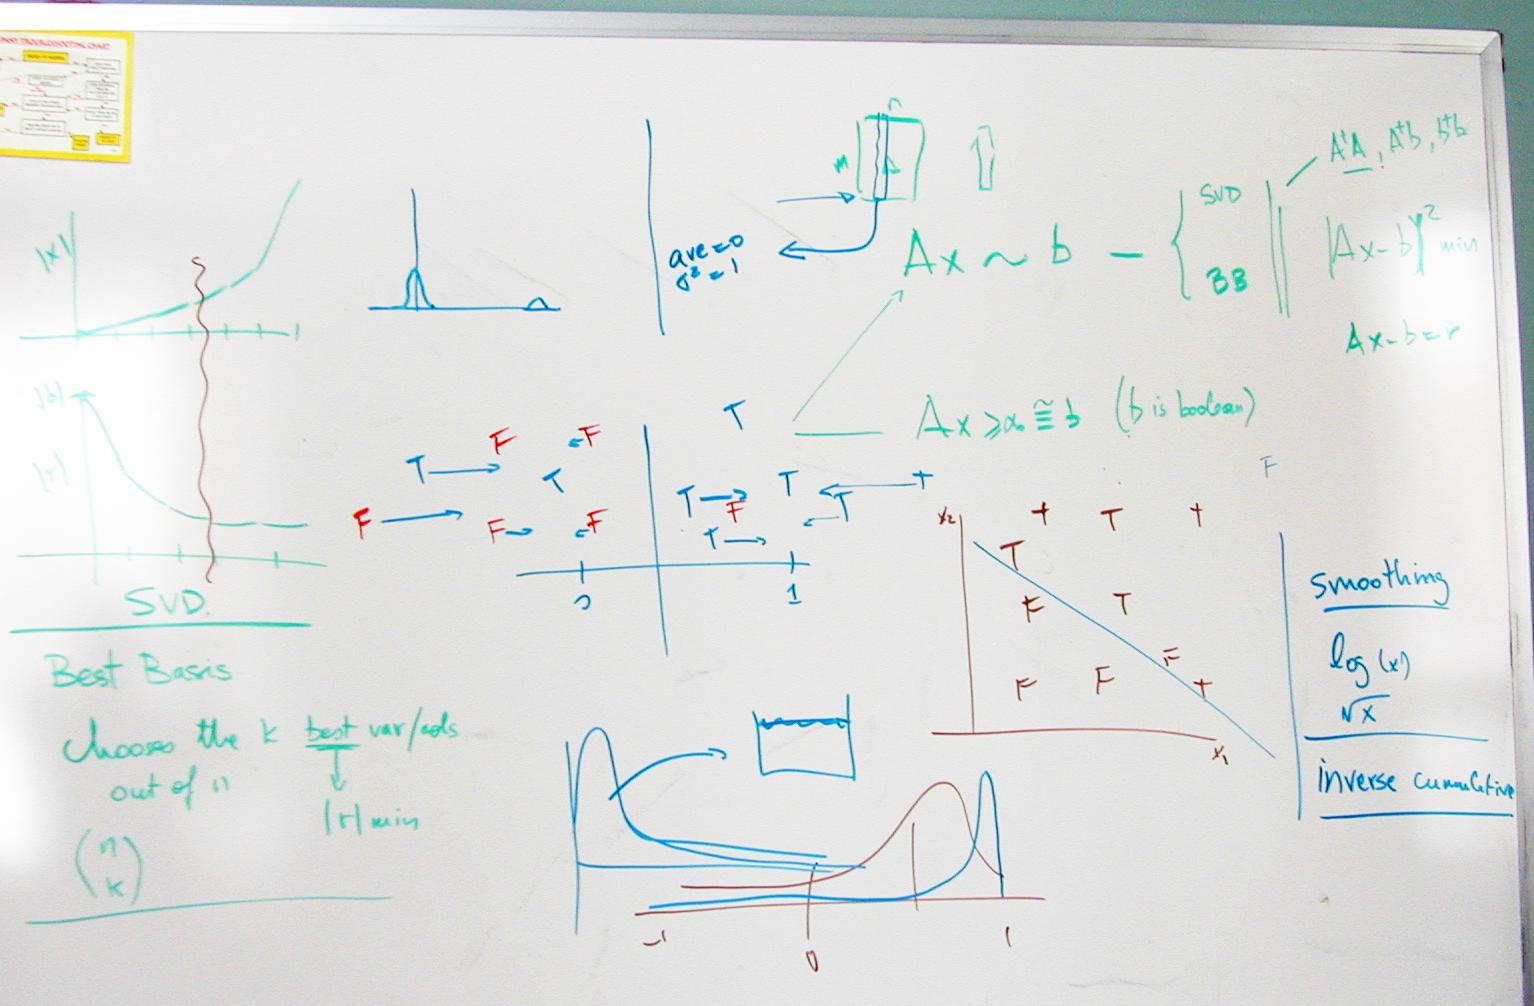 TROUBLESHOOTING CHART
|x|
|b|
|r|
SVD.
Best Basis
chooses the k best var/cols
out of n
|r| min
(n k)
ave=0
σ²=1
n
m
A
Ax ~ b – { SVD
BB
AᵗA, Aᵗb, bᵗb
|Ax-b|² min
Ax-b=r
Ax ≥ α ≅ b (b is boolean)
T
F F
T T
F F F
T T T T
F
T
0 1
F
x₂
T T T
T
F T
F F F T
x₁
smoothing
log(x)
√x
inverse cumulative
-1 0 1